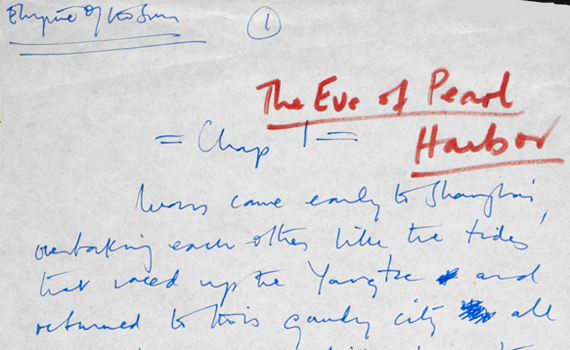 Empire of the Sun
1
The Eve of Pearl
Harbor
= Chap 1 =
Wars came early to Shanghai,
overtaking each other like the tides
that raced up the Yangtze and
returned to this gaudy city all